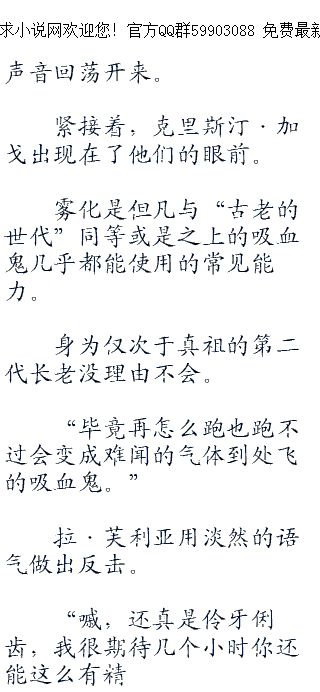 求小说网欢迎您！官方QQ群59903088 免费最新
声音回荡开来。
紧接着，克里斯汀·加
戈出现在了他们的眼前。
雾化是但凡与“古老的
世代”同等或是之上的吸血
鬼几乎都能使用的常见能
力。
身为仅次于真祖的第二
代长老没理由不会。
“毕竟再怎么跑也跑不
过会变成难闻的气体到处飞
的吸血鬼。”
拉·芙利亚用淡然的语
气做出反击。
“喊，还真是伶牙俐
齿，我很期待几个小时你还
能这么有精